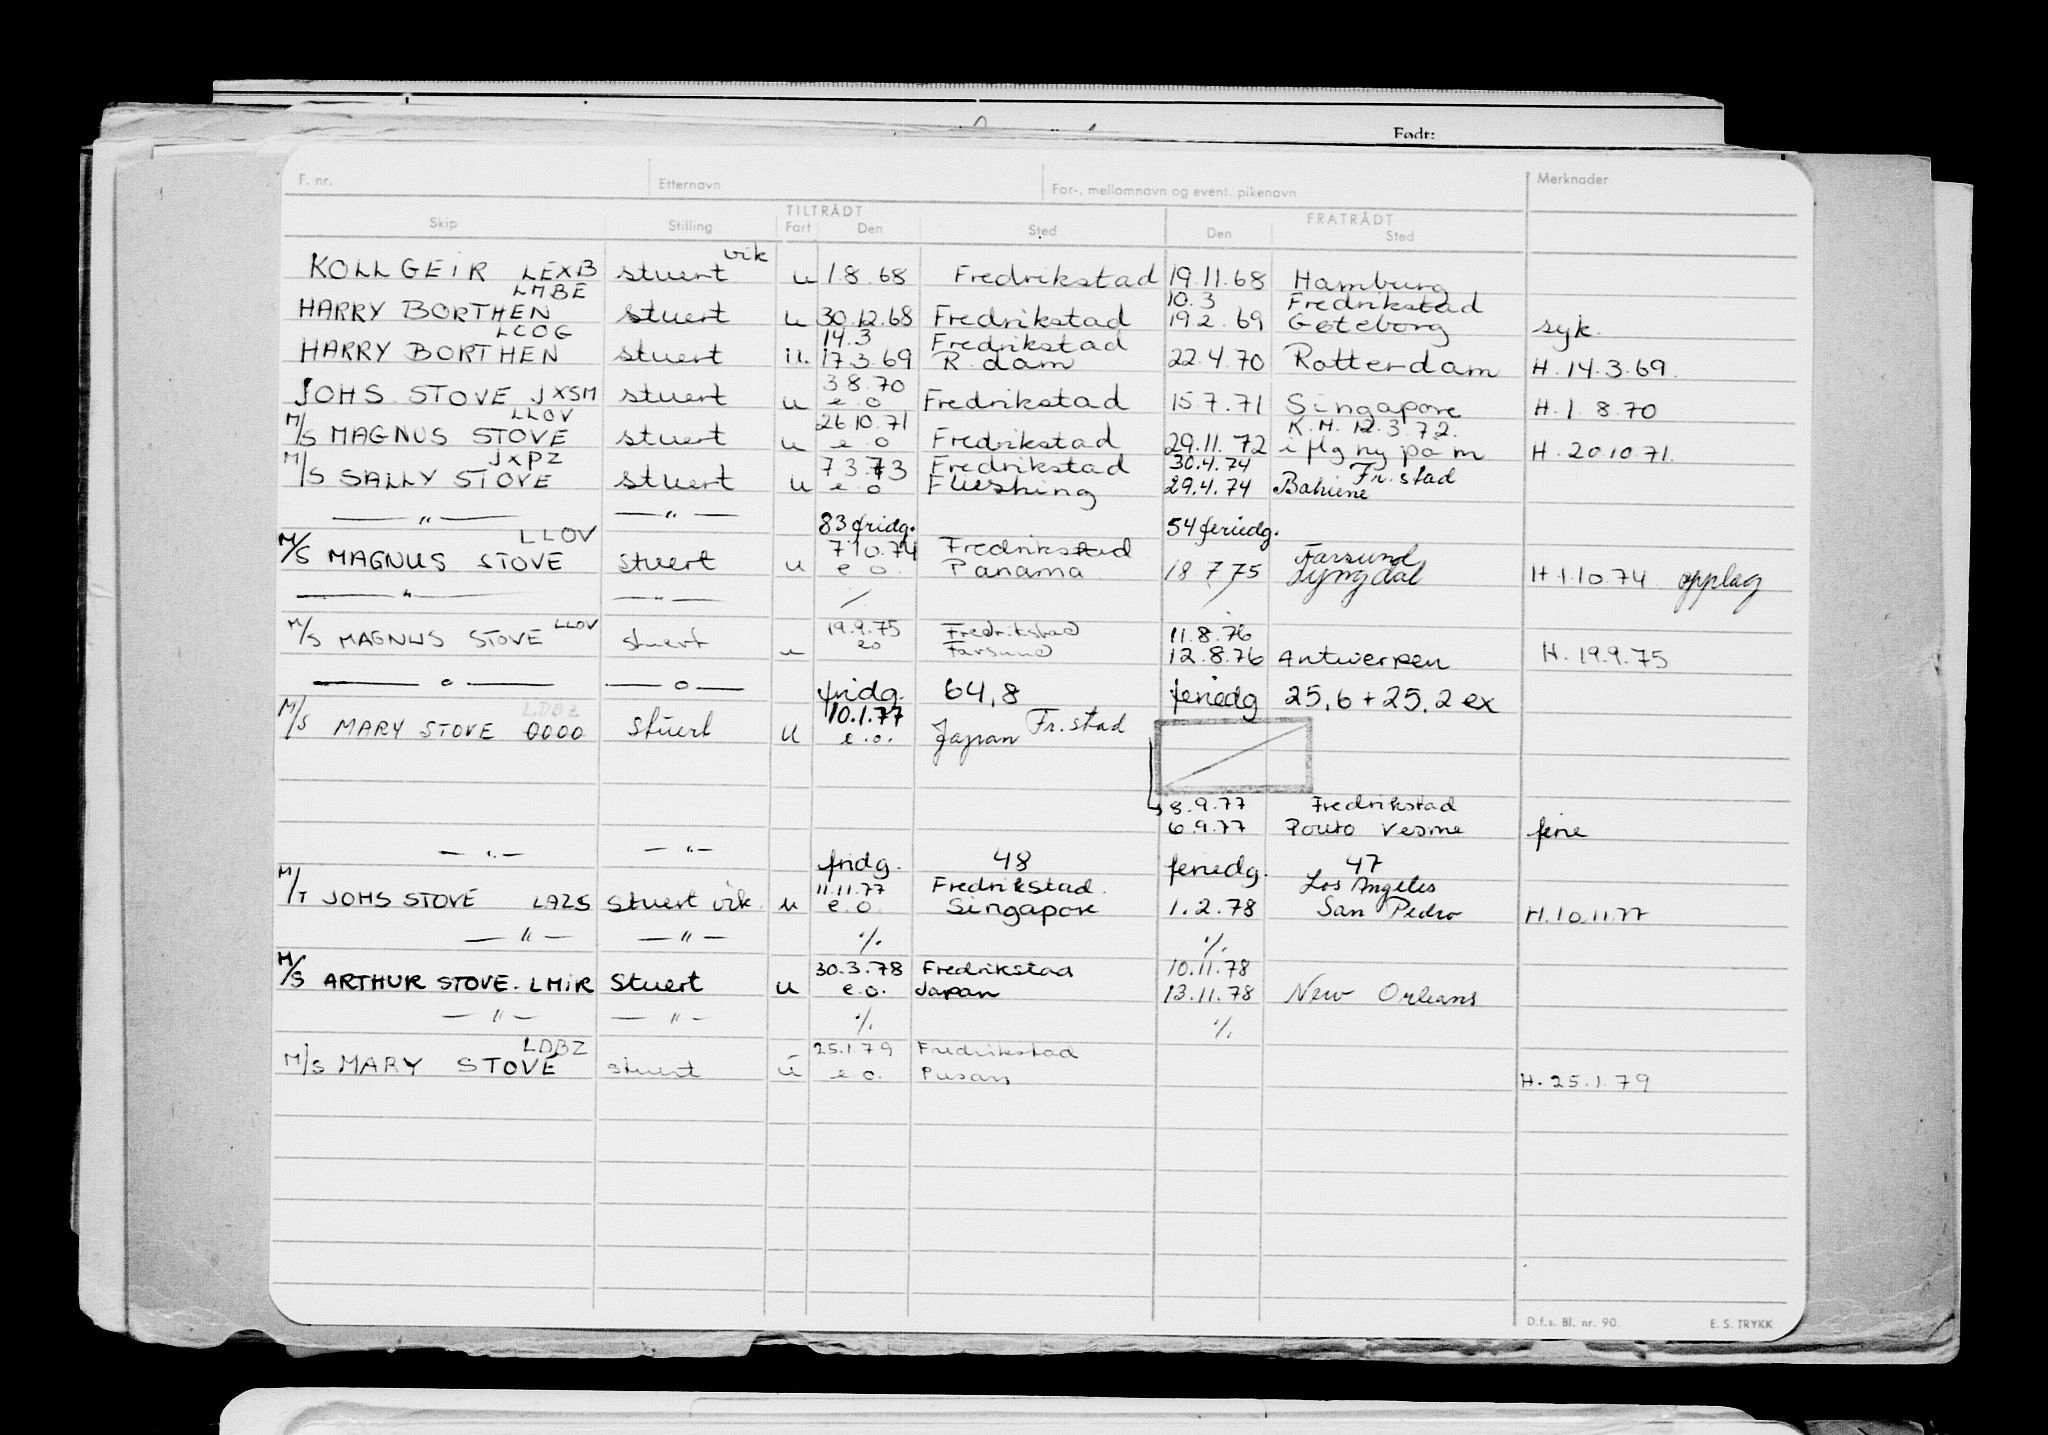 Født:
F. nr. Etternavn For-, mellomnavn og event. pikenavn Merknader
TILTRÅDT FRATRÅDT
Skip Stilling Fart Den Sted Den Sted
vik
KOLLGEIR LEXB stuert u 1.8.68 Fredrikstad 19.11.68 Hamburg
LMBE 10.3 Fredrikstad
HARRY BORTHEN stuert u 30.12.68 Fredrikstad 19.2.69 Gøteborg syk.
LCOG 14.3 Fredrikstad
HARRY BORTHEN stuert u. 17.3.69 R.dam 22.4.70 Rotterdam H.14.3.69.
3.8.70
JOHS STOVE JXSM stuert u e.o Fredrikstad 15.7.71 Singapore H.1.8.70
LLOV 26.10.71 K.H. 12.3.72.
M/S MAGNUS STOVE stuert u e.o Fredrikstad 29.11.72 i flg ny pa m H.20.10.71.
JXPZ 7.3.73 Fredrikstad 30.4.74 Fr.stad
M/S SALLY STOVE stuert u e.o Flushing 29.4.74
— " — — " — 83 fridg. 54 feriedg.
LLOV 7.10.74 Fredrikstad Farsund
M/S MAGNUS STOVE stuert u e.o. Panama 18.7.75 Lyngdal H.1.10.74 opplag
— " — — " — / /
LLOV 19.9.75 Fredrikstad 11.8.76
M/S MAGNUS STOVE stuert u eo Farsund 12.8.76 Antwerpen H.19.9.75
— o — — o — fridg. 64,8 feriedg 25,6 + 25,2 ex
LDBZ 10.1.77 Fr.stad
M/S MARY STOVE 0000 stuert u e.o. Japan
8.9.77 Fredrikstad
6.9.77 Porto Vesme ferie
— " — — " — fridg. 48 feriedg. 47
11.11.77 Fredrikstad. Los Angeles
M/T JOHS STOVE LAZS stuert vik. u e.o. Singapore 1.2.78 San Pedro H.10.11.77
— " — — " — ./. ./.
30.3.78 Fredrikstad 10.11.78
M/S ARTHUR STOVE. LMIR Stuert u e.o. Japan 13.11.78 New Orleans
— " — — " — ./. ./.
LDBZ 25.1.79 Fredrikstad
M/S MARY STOVE stuert u e.o. Pusan H.25.1.79
D.f.s. Bl. nr. 90. E. S. TRYKK